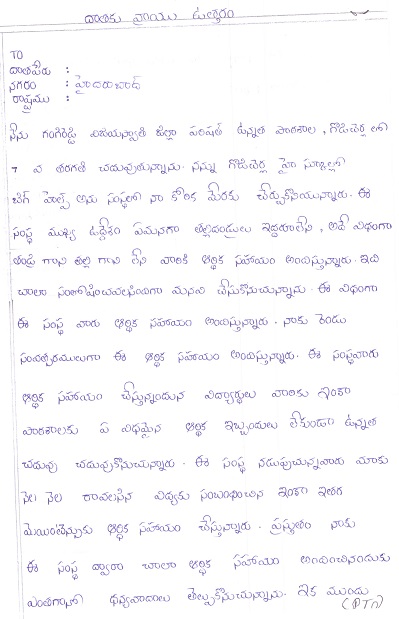 దాతకు వ్రాయు ఉత్తరం
TO
దాతపేరు :
నగరం : హైదరాబాద్
రాష్ట్రము :
నేను గంగిరెడ్డి విజయస్వాతి జిల్లా పరిషత్ ఉన్నత పాఠశాల , గొడిచెర్ల లో
7 వ తరగతి చదువుతున్నాను. నన్ను గొడిచెర్ల హై స్కూల్లో
బిగ్ హెల్ప్ అను సంస్థలో నా కోరిక మేరకు చేర్చుకొనియున్నారు. ఈ
సంస్థ ముఖ్య ఉద్దేశం ఏమనగా తల్లిదండ్రులు ఇద్దరూలేని , అదే విధంగా
తండ్రి గాని తల్లి గాని లేని వారికి ఆర్థిక సహాయం అందిస్తున్నారు. ఇది
చాలా సంతోషించవలసిందిగా మనవి చేసుకొనుచున్నాను. ఈ విధంగా
ఈ సంస్థ వారు ఆర్థిక సహాయం అందిస్తున్నారు. నాకు రెండు
సంవత్సరములుగా ఈ ఆర్థిక సహాయం అందిస్తున్నారు. ఈ సంస్థవారు
ఆర్థిక సహాయం చేస్తున్నందున విద్యార్థులు వారికు ఇంకా
పాఠశాలకు ఏ విధమైన ఆర్థిక ఇబ్బందులు లేకుండా ఉన్నత
చదువు చదువుకొనుచున్నారు. ఈ సంస్థ నడుపుచున్నవారు మాకు
నెల నెల రావలసిన విద్యకు సంబంధించిన ఇంకా ఇతర
మెయింటెన్సుకు ఆర్థిక సహాయం చేస్తున్నారు. ప్రస్తుతం నాకు
ఈ సంస్థ ద్వారా చాలా ఆర్థిక సహాయం అందించినందుకు
ఎంతగానో ధన్యవాదాలు తెల్పుకొనుచున్నాను. ఇక ముందు
(PTO)